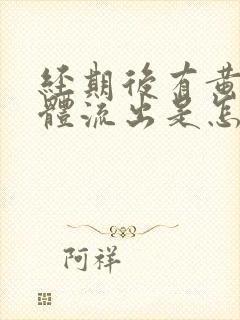 經期後有黄
體流出是怎
阿祥